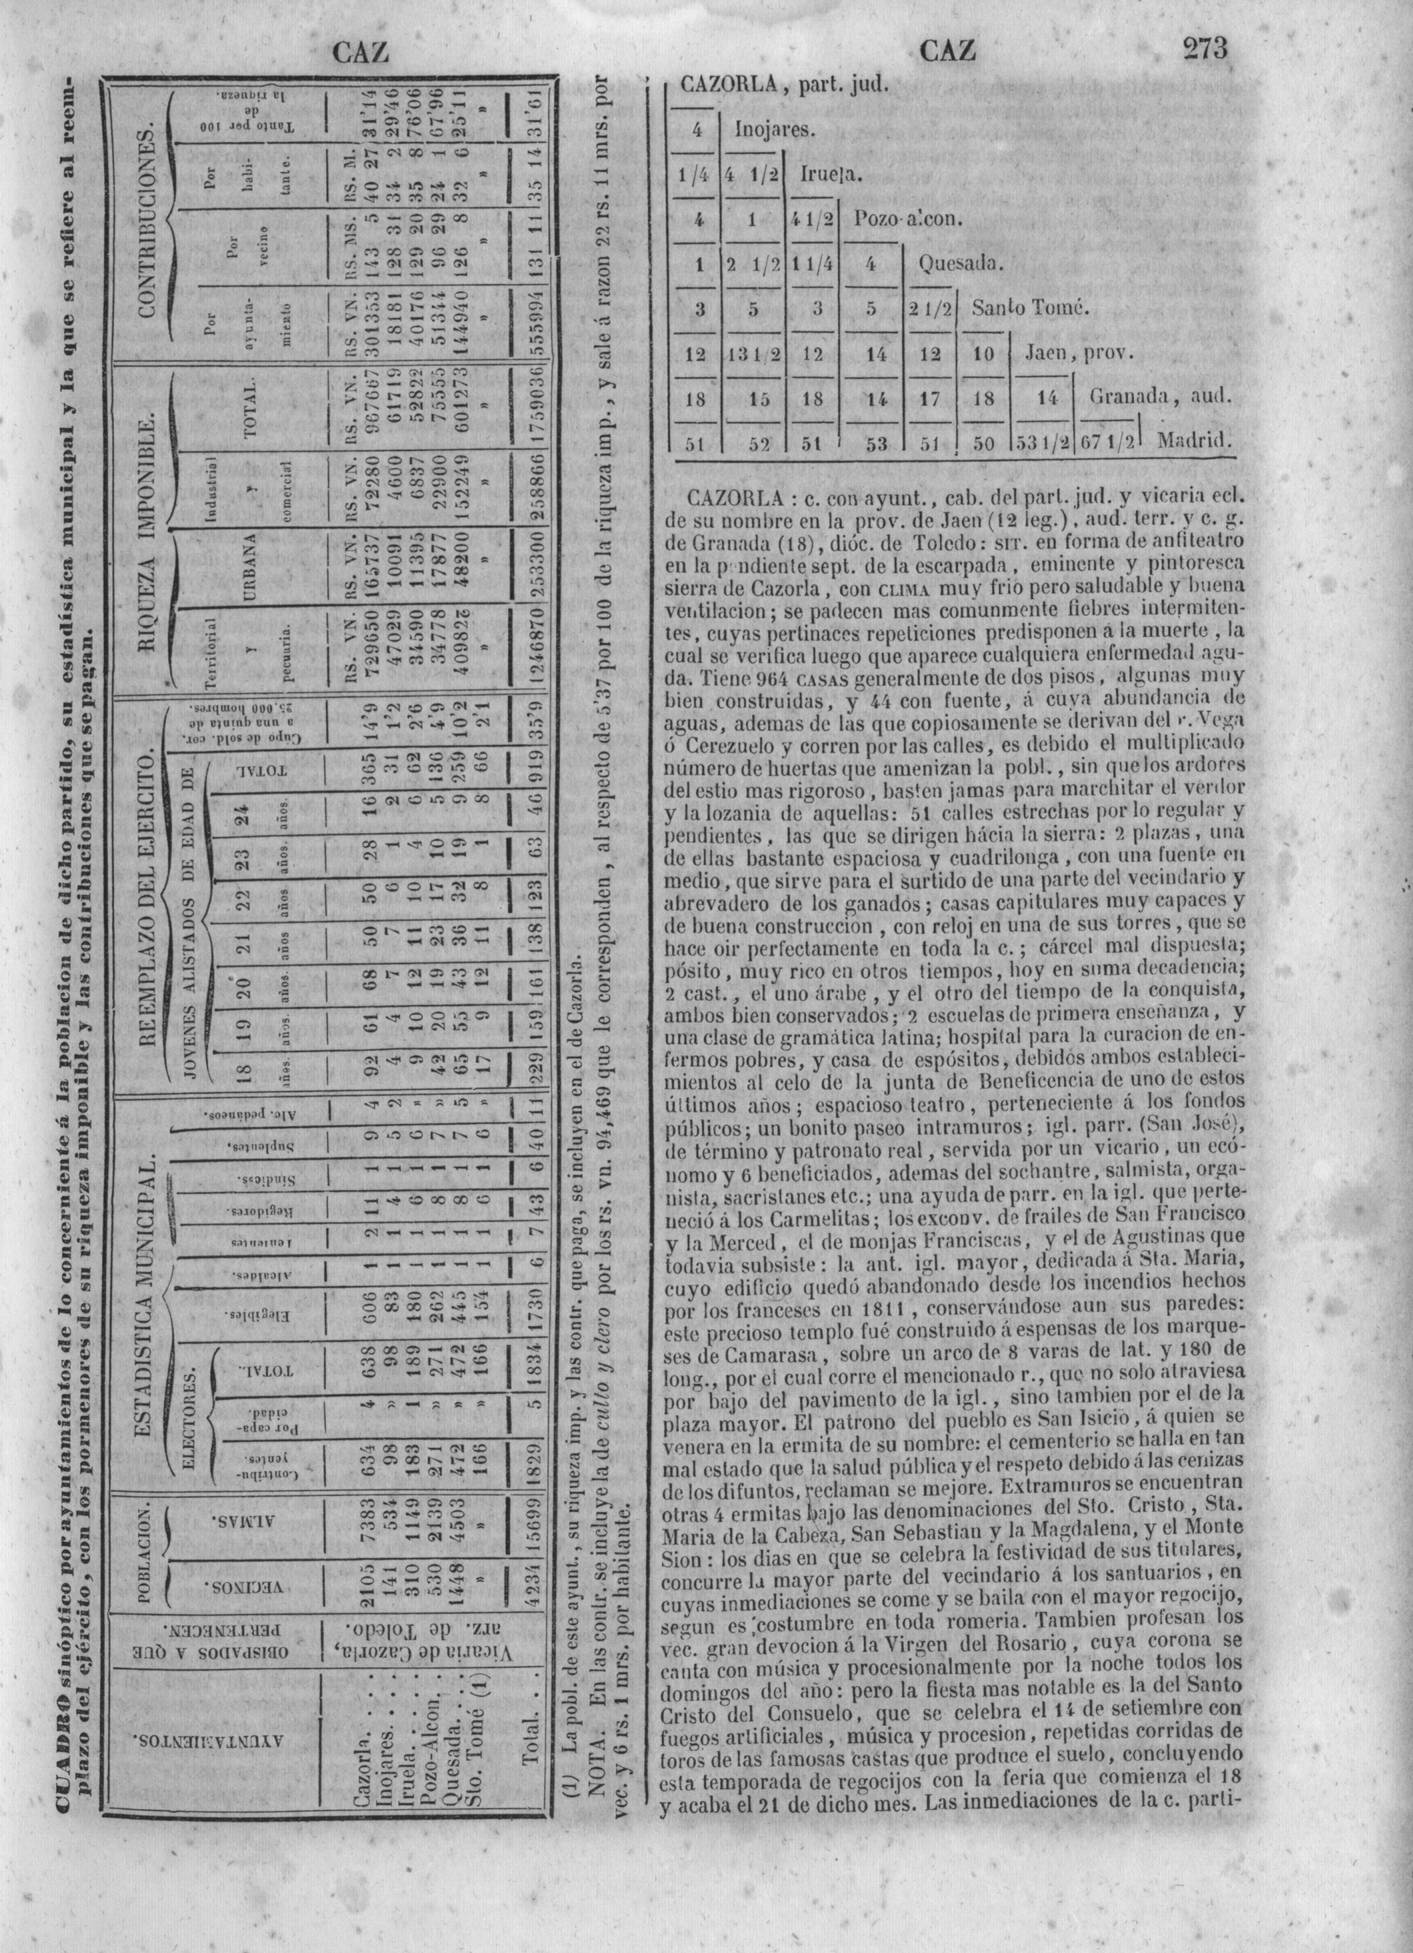 CAZ
CAZ 273
CUADRO sinóptico por ayuntamientos de lo concerniente á la poblacion de dicho partido, su estadística municipal y la que se refiere al reem-
plazo del ejército, con los pormenores de su riqueza imponible y las contribuciones que se pagan.
AYUNTAMIENTOS.
OBISPADOS A QUE PERTENECEN.
POBLACION.
VECINOS.
ALMAS.
ESTADISTICA MUNICIPAL.
ELECTORES.
Contribu-yentes.
Por capa-cidad.
TOTAL.
Elegibles.
Alcaldes.
Tenientes
Regidores.
Síndicos.
Suplentes.
Alc. pedáneos.
REEMPLAZO DEL EJERCITO.
JOVENES ALISTADOS DE EDAD DE
18 años.
19 años.
20 años.
21 años
22 años
23 años.
24 años.
TOTAL
Cupo de sold. cor. a una quinta de 25,000 hombres.
RIQUEZA IMPONIBLE.
Territorial y pecuaria.
URBANA
Industrial y comercial
TOTAL.
CONTRIBUCIONES.
Por ayunta-miento
Por vecino
Por habi-tante.
Tanto por 100 de la riqueza.
RS. VN. RS. VN. RS. VN. RS. VN. RS. VN. RS. MS. RS. M.
Vicaría de Cazorla, arz. de Toledo.
Cazorla. . . . 2105 7383 634 4 638 606 1 2 11 1 9 4 92 61 68 50 50 28 16 365 14'9 729650 165737 72280 967667 301353 143 5 40 27 31'14
Inojares. . . . 141 534 98 » 98 83 1 1 4 1 5 2 4 4 7 7 6 1 2 31 1'2 47029 10091 4600 61719 18181 128 31 34 2 29'46
Iruela. . . . 310 1149 183 1 189 180 1 1 6 1 6 » 9 10 12 11 10 4 6 62 2'6 34590 11395 6837 52822 40176 129 20 35 8 76'06
Pozo-Alcon. . 530 2139 271 » 271 262 1 1 8 1 7 » 42 20 19 23 17 10 5 136 4'9 34778 17877 22900 75555 51344 96 29 24 1 67'96
Quesada. . . 1448 4503 472 » 472 445 1 1 8 1 7 5 65 55 43 36 32 19 9 259 10'2 409823 48200 152249 601273 144940 126 8 32 6 25'11
Sto. Tomé (1) » » 166 » 166 154 1 1 6 1 6 » 17 9 12 11 8 1 8 66 2'1 » » » » » » » »
Total. . . 4234 15699 1829 5 1834 1730 6 7 43 6 40 11 229 159 161 138 123 63 46 919 35'9 1246870 253300 258866 1759036 555994 131 11 35 14 31'61
(1) La pobl. de este ayunt., su riqueza imp. y las contr. que paga, se incluyen en el de Cazorla.
NOTA. En las contr. se incluye la de culto y clero por los rs. vn. 94,469 que le corresponden, al respecto de 5'37 por 100 de la riqueza imp., y sale á razon 22 rs. 11 mrs. por
vec. y 6 rs. 1 mrs. por habitante.
CAZORLA, part. jud.
4 Inojares.
1/4 4 1/2 Iruela.
4 1 4 1/2 Pozo-alcon.
1 2 1/2 1 1/4 4 Quesada.
3 5 3 5 2 1/2 Santo Tomé.
12 13 1/2 12 14 12 10 Jaen, prov.
18 15 18 14 17 18 14 Granada, aud.
51 52 51 53 51 50 53 1/2 67 1/2 Madrid.
CAZORLA: c. con ayunt., cab. del part. jud. y vicaria ecl.
de su nombre en la prov. de Jaen (12 leg.), aud. terr. y c. g.
de Granada (18), dióc. de Toledo: SIT. en forma de anfiteatro
en la pendiente sept. de la escarpada, eminente y pintoresca
sierra de Cazorla, con CLIMA muy frio pero saludable y buena
ventilacion; se padecen mas comunmente fiebres intermiten-
tes, cuyas pertinaces repeticiones predisponen á la muerte, la
cual se verifica luego que aparece cualquiera enfermedad agu-
da. Tiene 964 CASAS generalmente de dos pisos, algunas muy
bien construidas, y 44 con fuente, á cuya abundancia de
aguas, ademas de las que copiosamente se derivan del r. Vega
ó Cerezuelo y corren por las calles, es debido el multiplicado
número de huertas que amenizan la pobl., sin que los ardores
del estio mas rigoroso, basten jamas para marchitar el verdor
y la lozania de aquellas: 51 calles estrechas por lo regular y
pendientes, las que se dirigen hácia la sierra: 2 plazas, una
de ellas bastante espaciosa y cuadrilonga, con una fuente en
medio, que sirve para el surtido de una parte del vecindario y
abrevadero de los ganados; casas capitulares muy capaces y
de buena construccion, con reloj en una de sus torres, que se
hace oir perfectamente en toda la c.; cárcel mal dispuesta;
pósito, muy rico en otros tiempos, hoy en suma decadencia;
2 cast., el uno árabe, y el otro del tiempo de la conquista,
ambos bien conservados; 2 escuelas de primera enseñanza, y
una clase de gramática latina; hospital para la curacion de en-
fermos pobres, y casa de espósitos, debidos ambos estableci-
mientos al celo de la junta de Beneficencia de uno de estos
últimos años; espacioso teatro, perteneciente á los fondos
públicos; un bonito paseo intramuros; igl. parr. (San José),
de término y patronato real, servida por un vicario, un ecó-
nomo y 6 beneficiados, ademas del sochantre, salmista, orga-
nista, sacristanes etc.; una ayuda de parr. en la igl. que perte-
neció á los Carmelitas; los exconv. de frailes de San Francisco
y la Merced, el de monjas Franciscas, y el de Agustinas que
todavia subsiste: la ant. igl. mayor, dedicada á Sta. Maria,
cuyo edificio quedó abandonado desde los incendios hechos
por los franceses en 1811, conservándose aun sus paredes:
este precioso templo fué construido á espensas de los marque-
ses de Camarasa, sobre un arco de 8 varas de lat. y 180 de
long., por el cual corre el mencionado r., que no solo atraviesa
por bajo del pavimento de la igl., sino tambien por el de la
plaza mayor. El patrono del pueblo es San Isicio, á quien se
venera en la ermita de su nombre: el cementerio se halla en tan
mal estado que la salud pública y el respeto debido á las cenizas
de los difuntos, reclaman se mejore. Extramuros se encuentran
otras 4 ermitas bajo las denominaciones del Sto. Cristo, Sta.
Maria de la Cabeza, San Sebastian y la Magdalena, y el Monte
Sion: los dias en que se celebra la festividad de sus titulares,
concurre la mayor parte del vecindario á los santuarios, en
cuyas inmediaciones se come y se baila con el mayor regocijo,
segun es costumbre en toda romeria. Tambien profesan los
vec. gran devocion á la Virgen del Rosario, cuya corona se
canta con música y procesionalmente por la noche todos los
domingos del año: pero la fiesta mas notable es la del Santo
Cristo del Consuelo, que se celebra el 14 de setiembre con
fuegos artificiales, música y procesion, repetidas corridas de
toros de las famosas castas que produce el suelo, concluyendo
esta temporada de regocijos con la feria que comienza el 18
y acaba el 21 de dicho mes. Las inmediaciones de la c. parti-